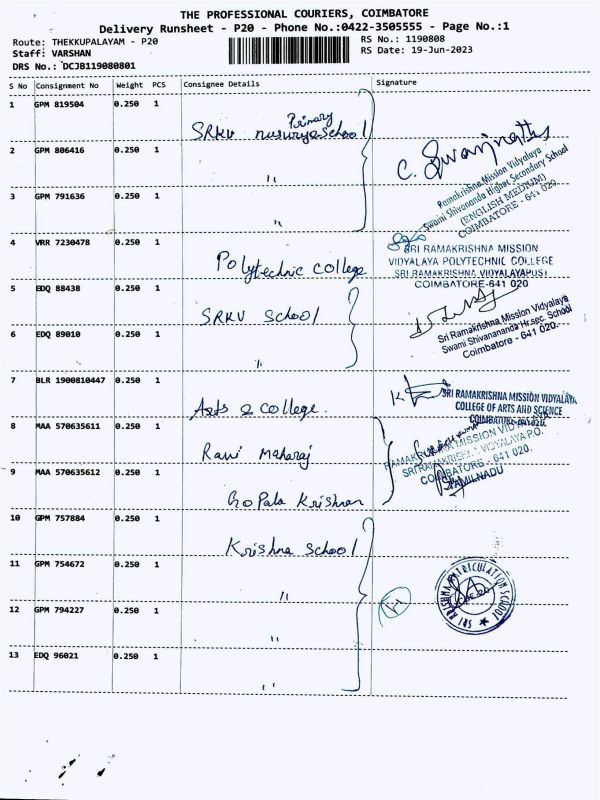 THE PROFESSIONAL COURIERS, COIMBATORE
Delivery Runsheet - P20 - Phone No.:0422-3505555 - Page No.:1
Route: THEKKUPALAYAM - P20
RS No.: 1190808
Staff: VARSHAN
RS Date: 19-Jun-2023
DRS No.: DCJB119080801
S No Consignment No Weight PCS Consignee Details Signature
1 GPM 819504 0.250 1
Primary
SRKV School
2 GPM 806416 0.250 1
"
C.
Ramakrishna Mission Vidyalaya
Swami Shivananda Higher Secondary School
(ENGLISH MEDIUM)
COIMBATORE - 641 020
3 GPM 791636 0.250 1
"
4 VRR 7230478 0.250 1
Polytechnic College
SRI RAMAKRISHNA MISSION
VIDYALAYA POLYTECHNIC COLLEGE
SRI RAMAKRISHNA VIDYALAYA(PO)
COIMBATORE-641 020
5 EDQ 88438 0.250 1
SRKV School
6 EDQ 89010 0.250 1
"
Sri Ramakrishna Mission Vidyalaya
Swami Shivanananda Hr.sec. School
Coimbatore - 641 020.
7 BLR 1900810447 0.250 1
Arts & College.
SRI RAMAKRISHNA MISSION VIDYALAYA
COLLEGE OF ARTS AND SCIENCE
COIMBATORE-641 020.
8 MAA 570635611 0.250 1
Ravi Maharaj
RAMAKRISHNA MISSION VIDYALAYA
SRI RAMAKRISHNA VIDYALAYA P.O.
COIMBATORE - 641 020.
TAMILNADU
9 MAA 570635612 0.250 1
Gopala Krishnan
10 GPM 757884 0.250 1
Krishna School
11 GPM 754672 0.250 1
"
SRI KRISHNA MATRICULATION SCHOOL
12 GPM 794227 0.250 1
"
13 EDQ 96021 0.250 1
"